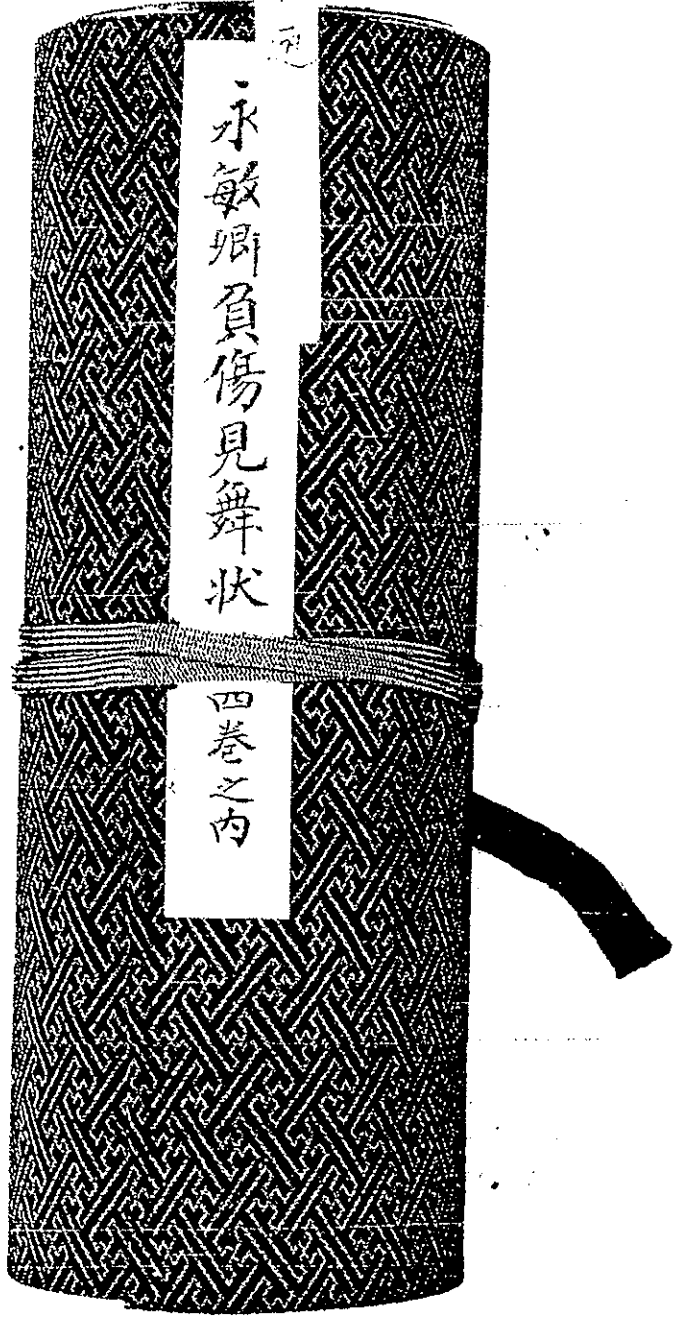 永敏卿負傷見舞状 四巻之内